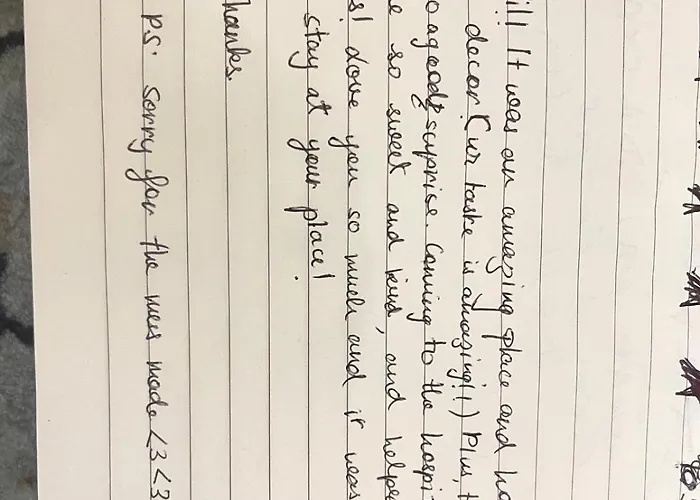 ill! It was an amazing place and ho
decor! (ur taske is amazing!!) Plus, t
o a good surprise. Coming to the hospi
e so sweet and kind, and helpe
s! Love you so much and it was
stay at your place!
hanks.
PS: Sorry for the mess made <3 <3